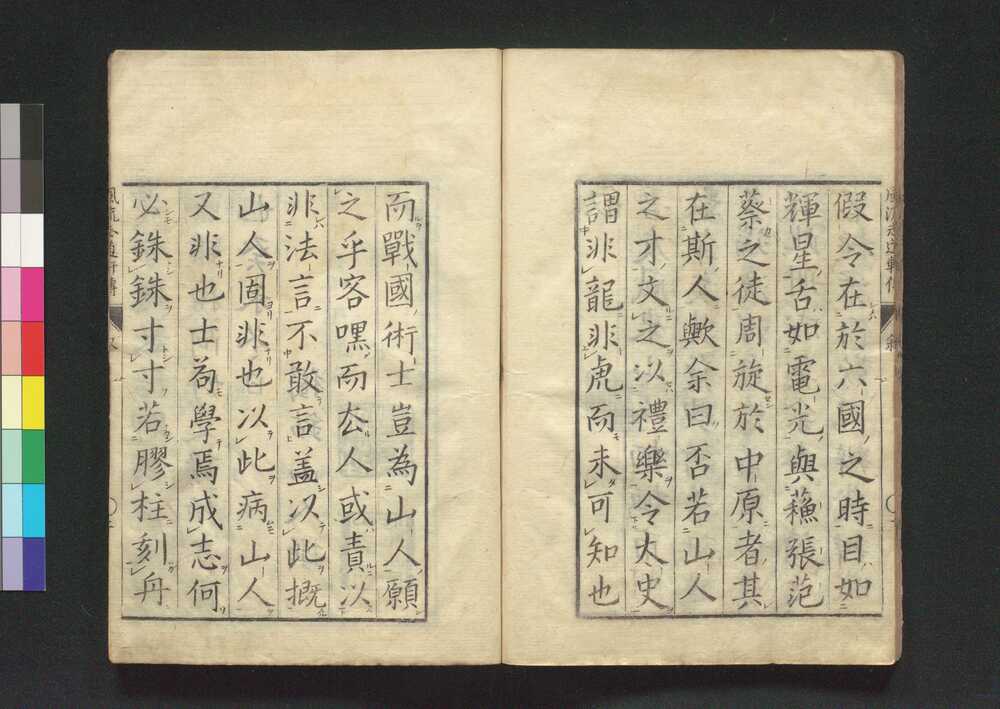 假令在於六國之時目如
輝星舌如電光與蘓張范
蔡之徒周旋於中原者其
在斯人歟余曰否若山人
之才文之以禮樂令太史
謂非龍非虎而未可知也
而戰國術士豈為山人願
之乎客嘿而厺人或責以
非法言不敢言盖以此概
山人固非也以此病山人
又非也士苟學焉成志何
必銖銖寸寸若膠柱刻舟